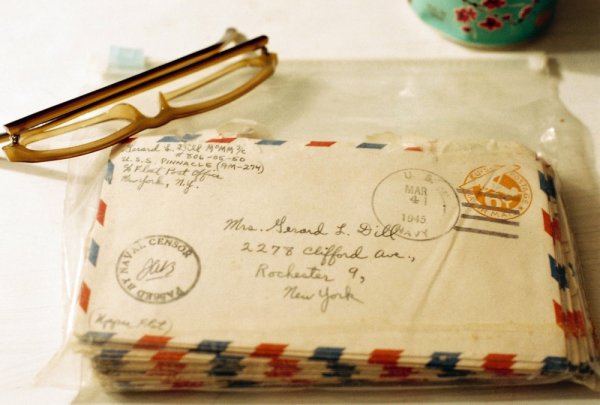 Gerard L. Dill MoMM 3/c
# 806-05-50
U.S.S. PINNACLE (AM-274)
c/o Fleet Post Office
New York, N.Y.
U.S.
NAVY
MAR
4
1945
Mrs. Gerard L. Dill
2278 Clifford Ave.,
Rochester 9,
New York
PASSED BY NAVAL CENSOR
(Upper Flat)